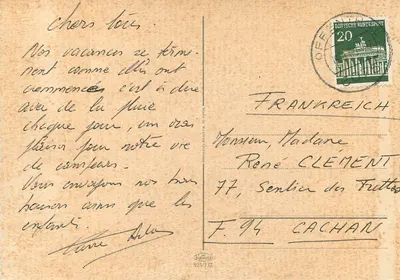 Chers tous,
Nos vacances se termi-
nent comme elles ont
commencées c'est à dire
avec de la pluie
chaque jour, un vrai
plaisir pour notre vie
de campeurs.
Nous envoyons nos bons
baisers ainsi que les
enfants.
Pierre
20
DEUTSCHE BUNDESPOST
OFFENBURG
FRANKREICH
Monsieur, Madame
René CLEMENT
77, Sentier des
F. 94 CACHAN